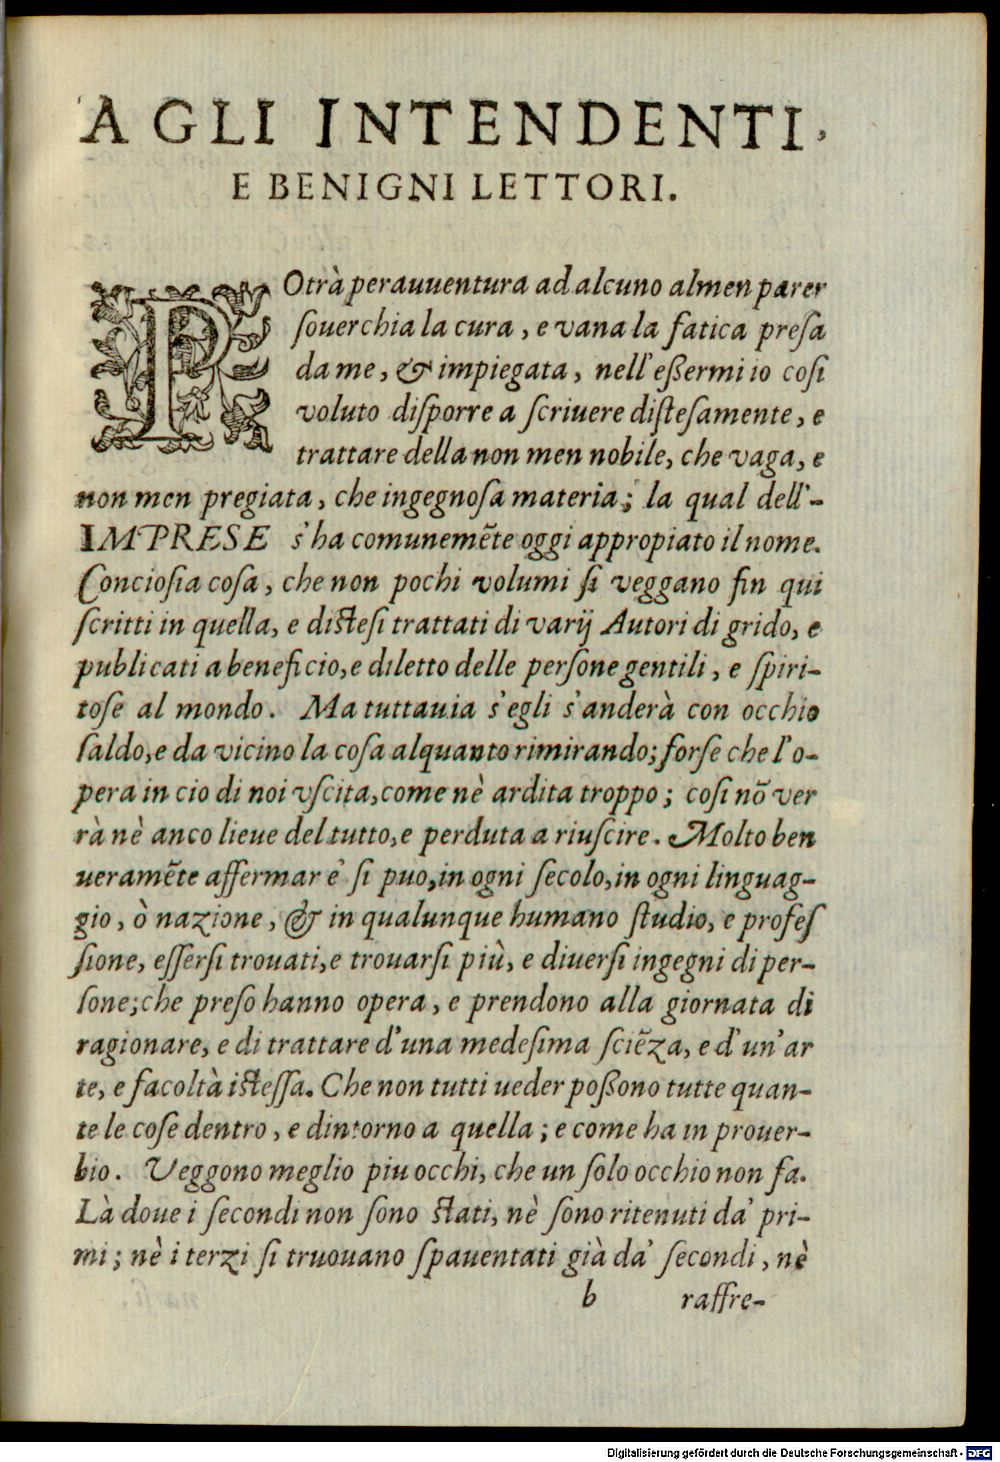 A GLI INTENDENTI,
E BENIGNI LETTORI.
POtrà perauuentura ad alcuno almen parer
ſouerchia la cura, e vana la fatica preſa
da me, & impiegata, nell'eßermi io coſi
voluto diſporre a ſcriuere diſteſamente, e
trattare della non men nobile, che vaga, e
non men pregiata, che ingegnoſa materia; la qual dell'-
IMPRESE s'ha comunemẽte oggi appropiato il nome.
Concioſia coſa, che non pochi volumi ſi veggano fin qui
ſcritti in quella, e diſteſi trattati di varij Autori di grido, e
publicati a beneficio, e diletto delle perſone gentili, e ſpiri-
toſe al mondo. Ma tuttauia s'egli s'anderà con occhio
ſaldo, e da vicino la coſa alquanto rimirando; forſe che l'o-
pera in cio di noi vſcita, come nè ardita troppo; coſi nõ ver
rà nè anco lieue del tutto, e perduta a riuſcire. Molto ben
veramẽte affermar e' ſi puo, in ogni ſecolo, in ogni linguag-
gio, ò nazione, & in qualunque humano ſtudio, e profeſ
ſione, eſſerſi trouati, e trouarſi più, e diuerſi ingegni di per-
ſone; che preſo hanno opera, e prendono alla giornata di
ragionare, e di trattare d'una medeſima ſciẽza, e d'un'ar
te, e facoltà iſteſſa. Che non tutti ueder poßono tutte quan-
te le coſe dentro, e dintorno a quella; e come ha in prouer-
bio. Veggono meglio piu occhi, che un ſolo occhio non fa.
Là doue i ſecondi non ſono ſtati, nè ſono ritenuti da' pri-
mi; nè i terzi ſi truouano ſpauentati già da' ſecondi, nè
b raffre-
Digitalisierung gefördert durch die Deutsche Forschungsgemeinschaft - DFG